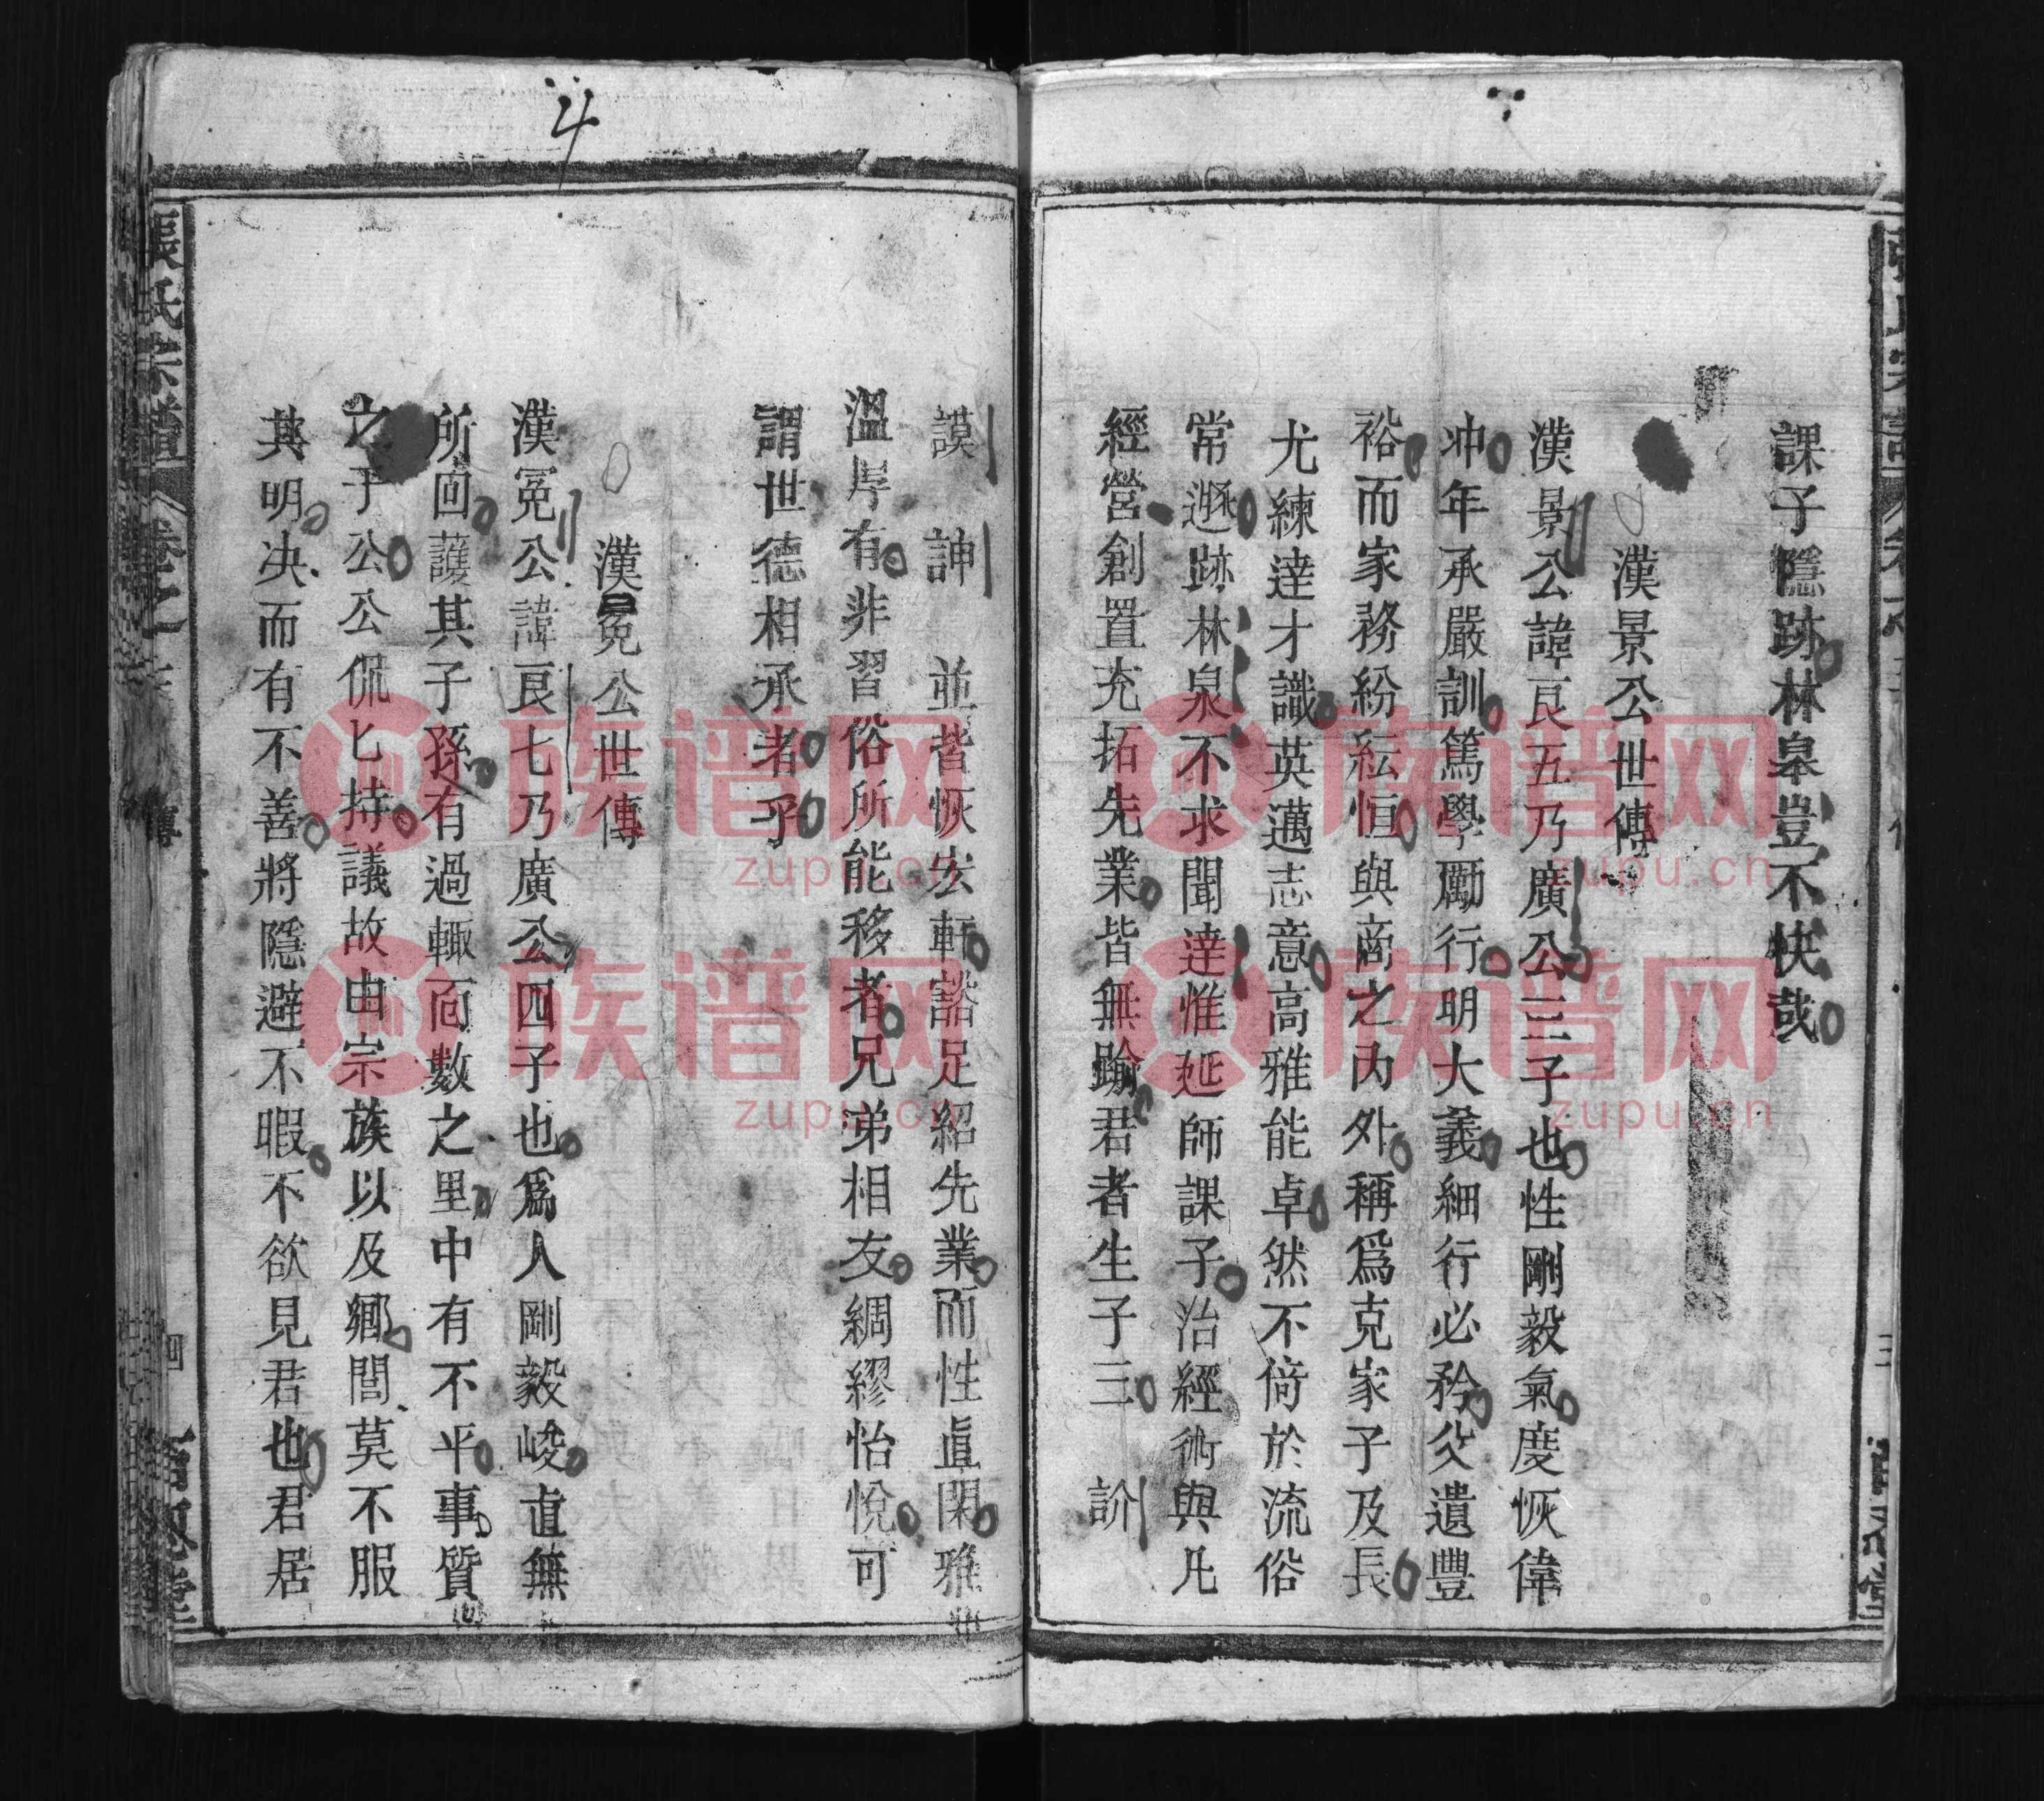 課子隱跡林皋豈不快哉
漢景公世傳
漢景公諱艮五乃廣公三子也性剛毅氣度恢偉
冲年承嚴訓篤學勵行明大義細行必矜父遺豐
裕而家務紛紜恒與啇之內外稱爲克家子及長
尤練達才識英邁志意高雅能卓然不倚於流俗
常遯跡林泉不求聞達惟延師課子治經術與凡
經營創置充拓先業皆無踰君者生子三 訜
謨 訷 並皆恢宏軒豁足紹先業而性眞閑雅
溫厚有非習俗所能移者兄弟相友綢繆怡悅可
謂世德相承者乎
漢冕公世傳
漢冕公諱艮七乃廣公四子也爲人剛毅峻直無
所回護其子孫有過輙面數之里中有不平事質
之于公公侃匕持議故由宗族以及鄉閭莫不服
其明决而有不善將隱避不暇不欲見君也君居
張氏宗譜 卷之 傳 四
4
族谱网
zupu.cn
族谱网
zupu.cn
族谱网
zupu.cn
族谱网
zupu.cn